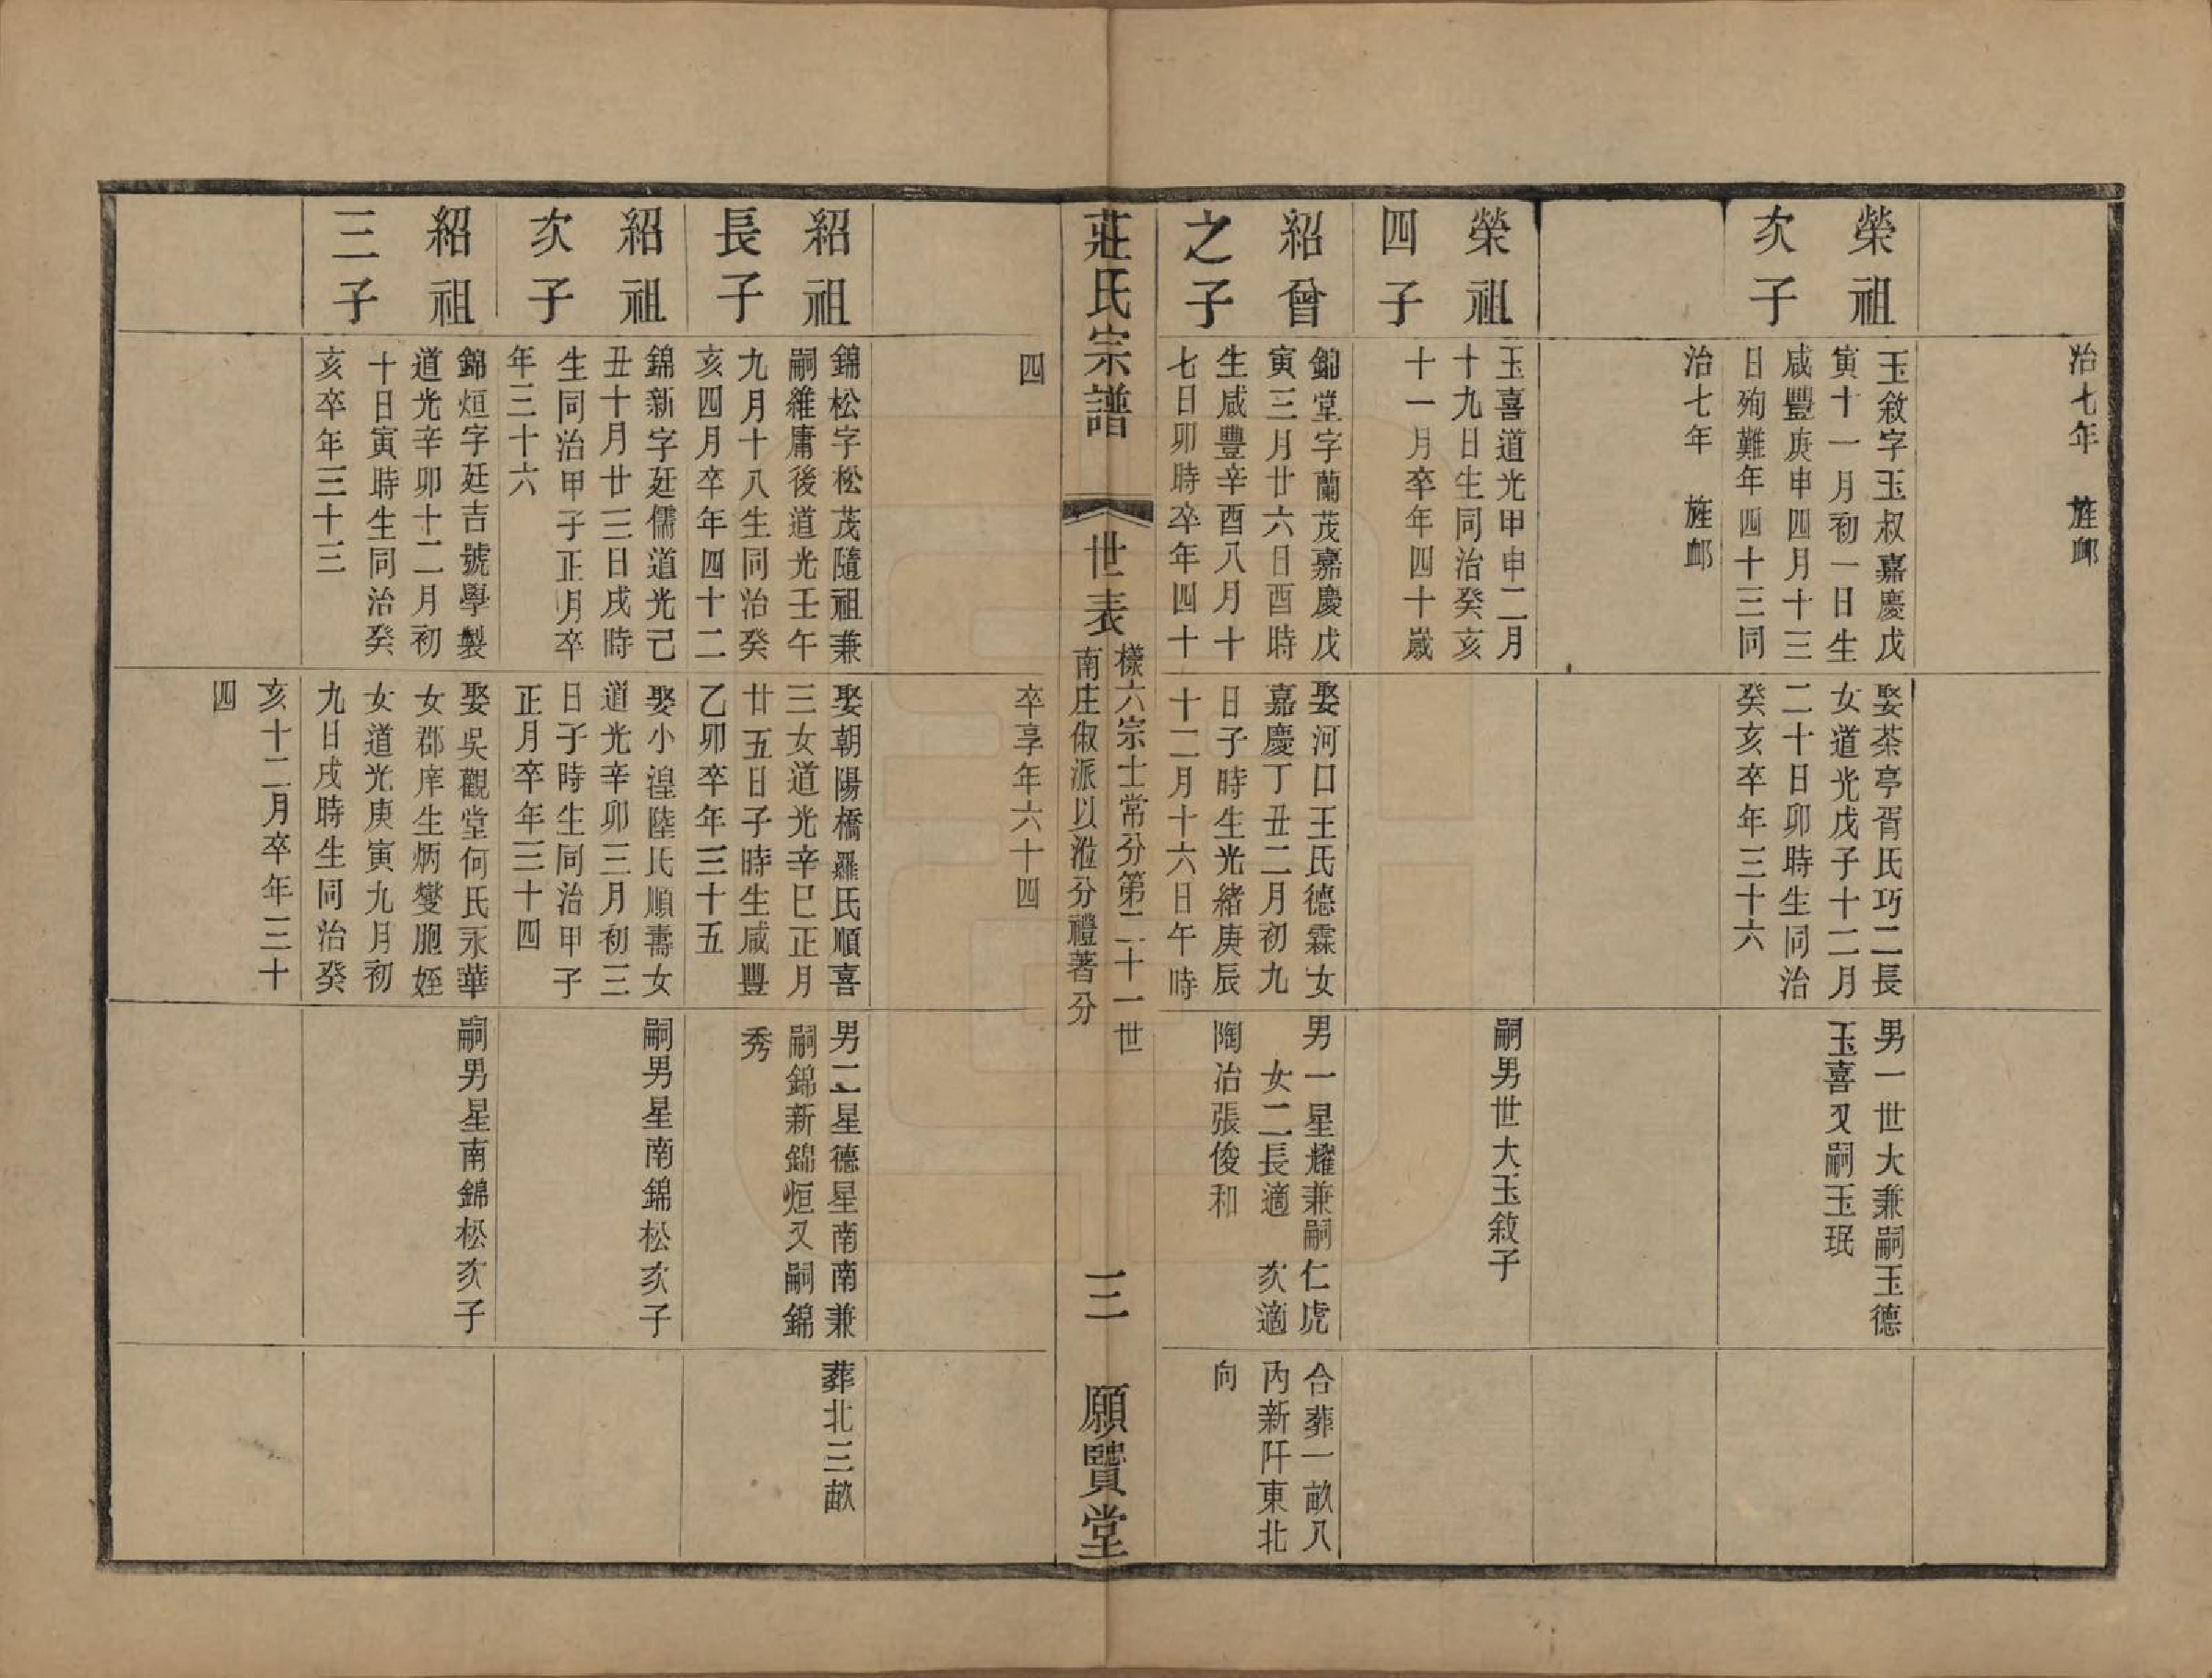 治七年　旌卹
榮祖
次子
玉敘字玉叔嘉慶戊
寅十一月初一日生
咸豐庚申四月十三
日殉難年四十三同
治七年　旌卹
娶茶亭胥氏巧二長
女道光戊子十二月
二十日卯時生同治
癸亥卒年三十六
男一世大兼嗣玉德
玉喜又嗣玉珉
榮祖
四子
玉喜道光甲申二月
十九日生同治癸亥
十一月卒年四十歲
嗣男世大玉敘子
紹曾
之子
錦堂字蘭茂嘉慶戊
寅三月廿六日酉時
生咸豐辛酉八月十
七日卯時卒年四十
四
娶河口王氏德霖女
嘉慶丁丑二月初九
日子時生光緒庚辰
十二月十六日午時
卒享年六十四
男一星耀兼嗣仁虎
女二長適　次適
陶冶張俊和
合葬一畝八
內新阡東北
向
莊氏宗譜
世表
樣六宗士常分第二十一世
南庄俶派以涖分禮著分
三
願賢堂
紹祖
長子
錦松字松茂隨祖兼
嗣維庸後道光壬午
九月十八生同治癸
亥四月卒年四十二
娶朝陽橋羅氏順喜
三女道光辛巳正月
廿五日子時生咸豐
乙卯卒年三十五
男二星德星南南兼
嗣錦新錦烜又嗣錦
秀
葬北三畝
紹祖
次子
錦新字廷儒道光己
丑十月廿三日戌時
生同治甲子正月卒
年三十六
娶小湟陸氏順壽女
道光辛卯三月初三
日子時生同治甲子
正月卒年三十四
嗣男星南錦松次子
紹祖
三子
錦烜字廷吉號學製
道光辛卯十二月初
十日寅時生同治癸
亥卒年三十三
娶吳觀堂何氏永華
女郡庠生炳燮胞姪
女道光庚寅九月初
九日戌時生同治癸
亥十二月卒年三十
四
嗣男星南錦松次子